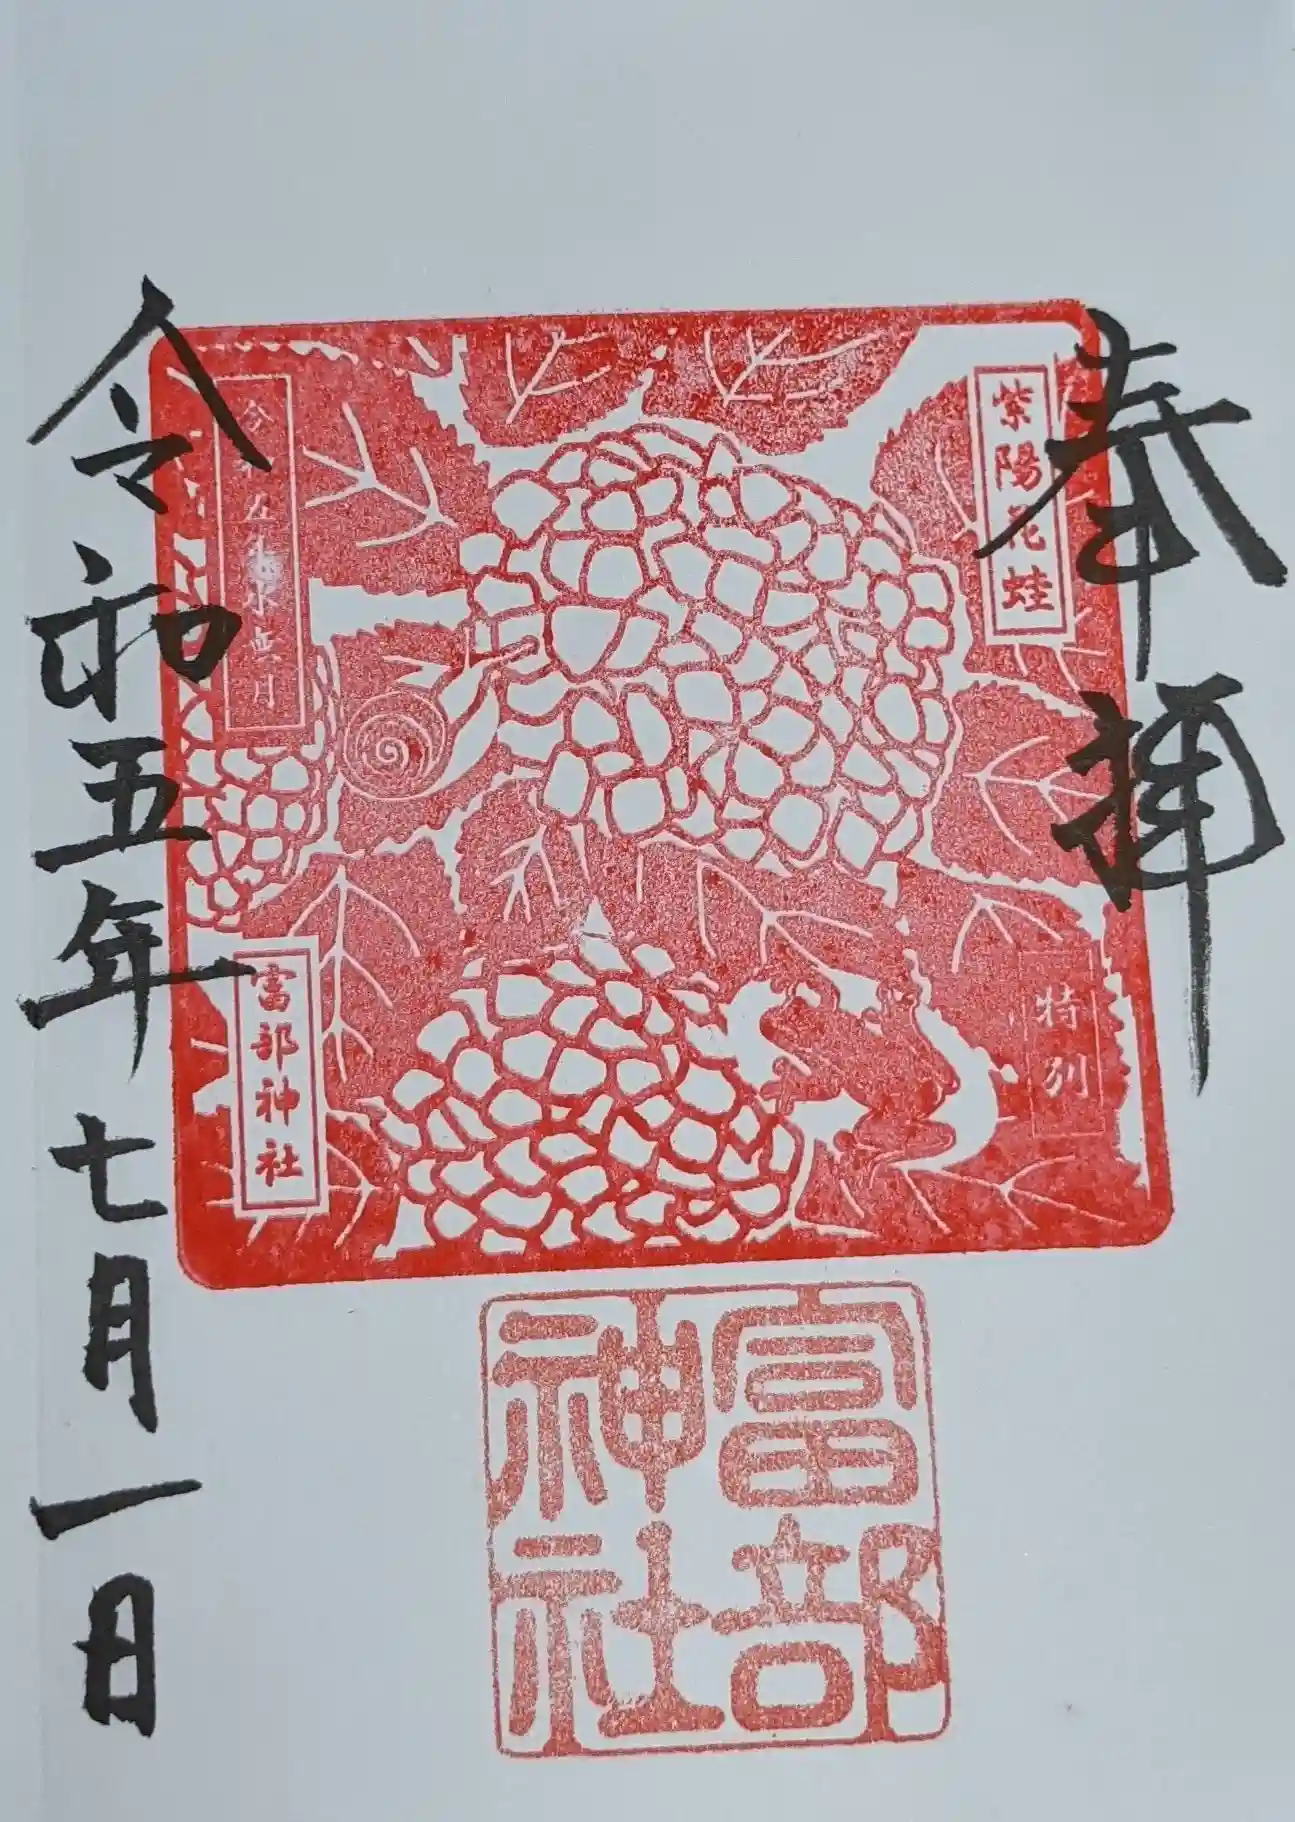 奉拝
紫陽花蛙
特別
令和五年水無月
富部神社
令和五年七月一日
富部
神社